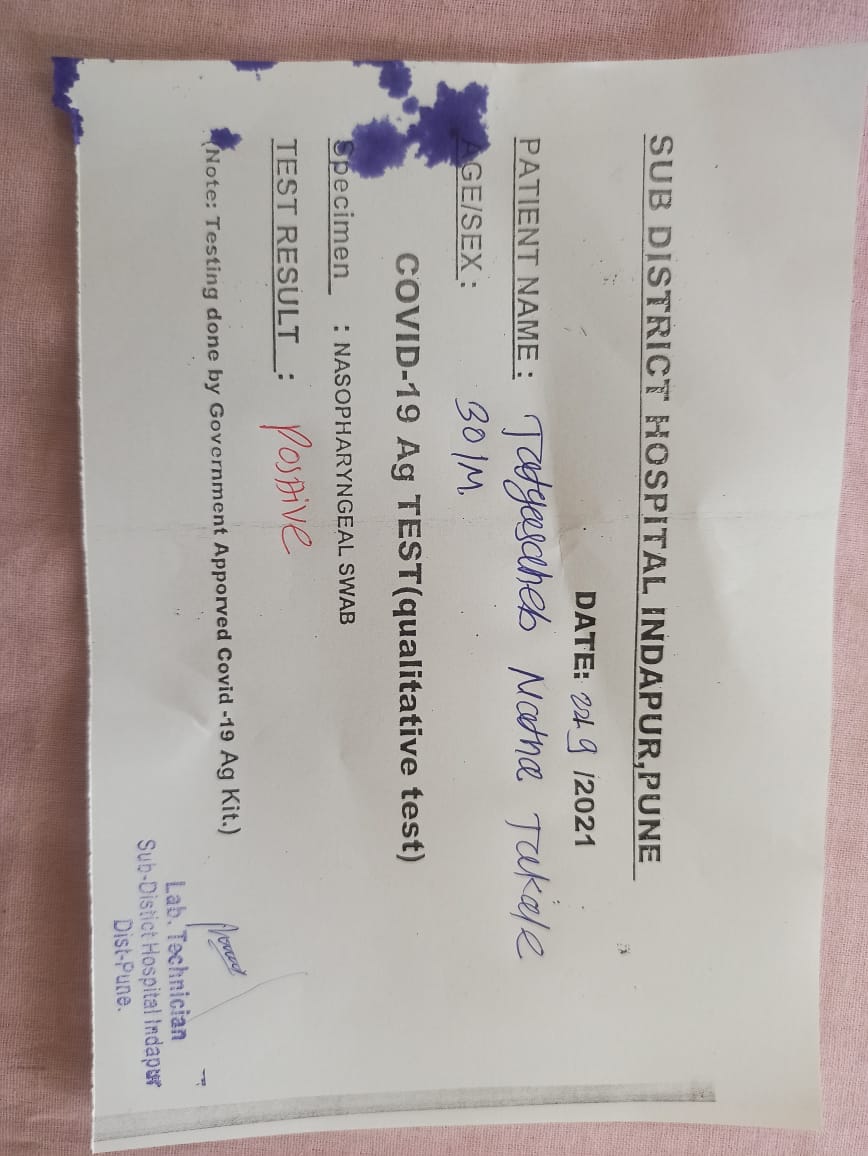 SUB DISTRICT HOSPITAL INDAPUR,PUNE
DATE: 22/9 /2021
PATIENT NAME : Tatyasaheb Natha Takale
AGE/SEX : 30/M.
COVID-19 Ag TEST(qualitative test)
Specimen : NASOPHARYNGEAL SWAB
TEST RESULT : positive
(Note: Testing done by Government Apporved Covid -19 Ag Kit.)
Lab. Technician
Sub-Distict Hospital Indapur
Dist-Pune.